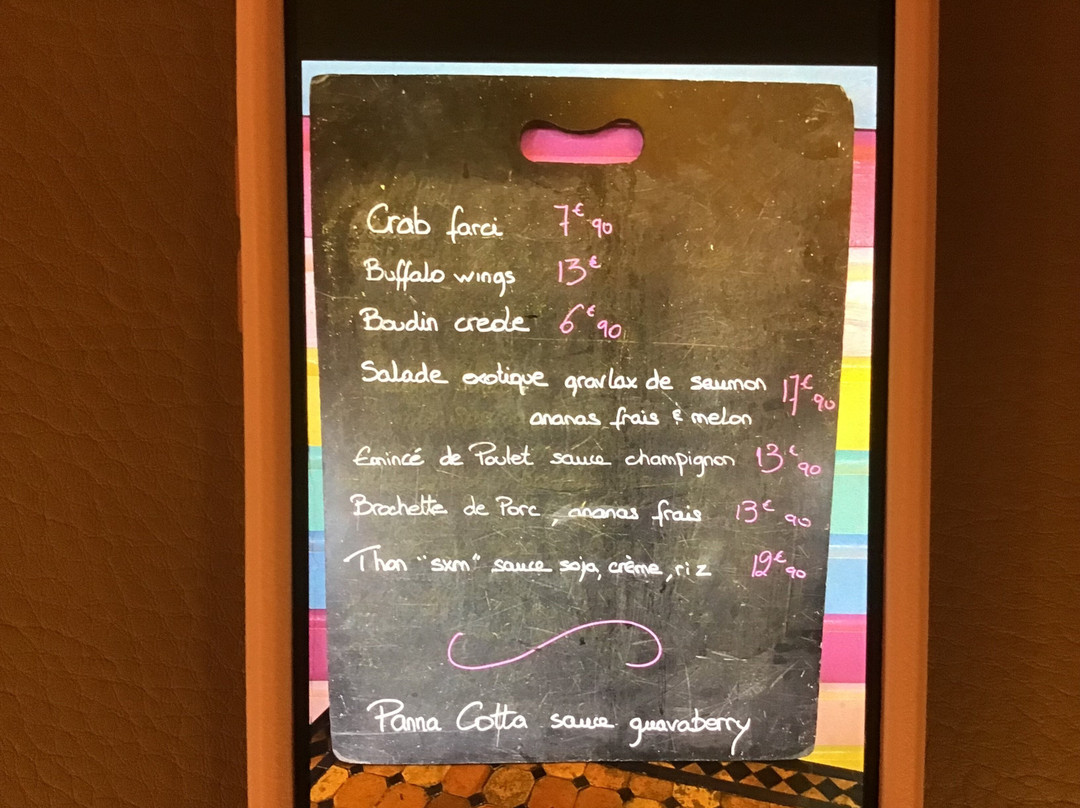 Crab farci 7€90
Buffalo wings 13€
Boudin creole 6€90
Salade exotique gravlax de saumon 17€90
ananas frais & melon
Emincé de Poulet sauce champignon 13€90
Brochette de Porc, ananas frais 13€90
Thon "sxm" sauce soja, crème, riz 19€90
Panna Cotta sauce guavaberry